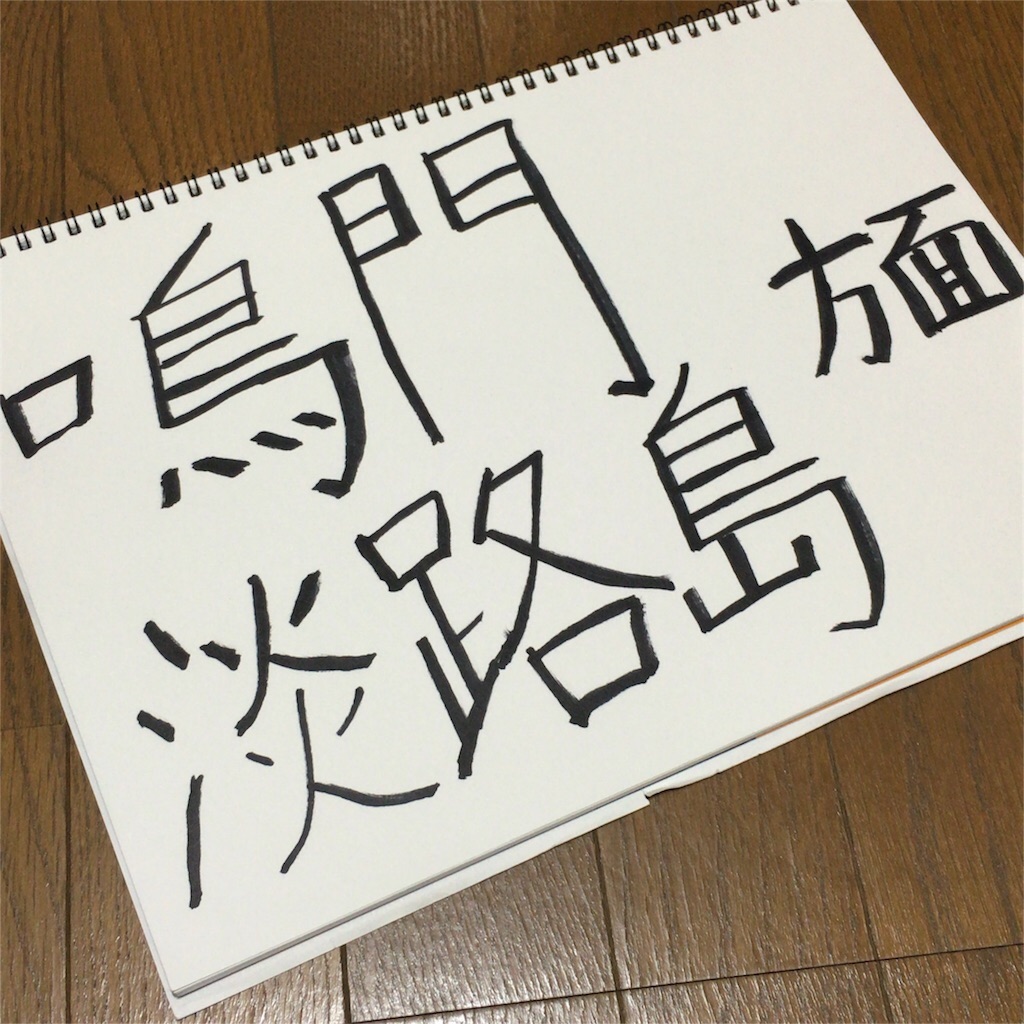 鳴門 方面
淡路島